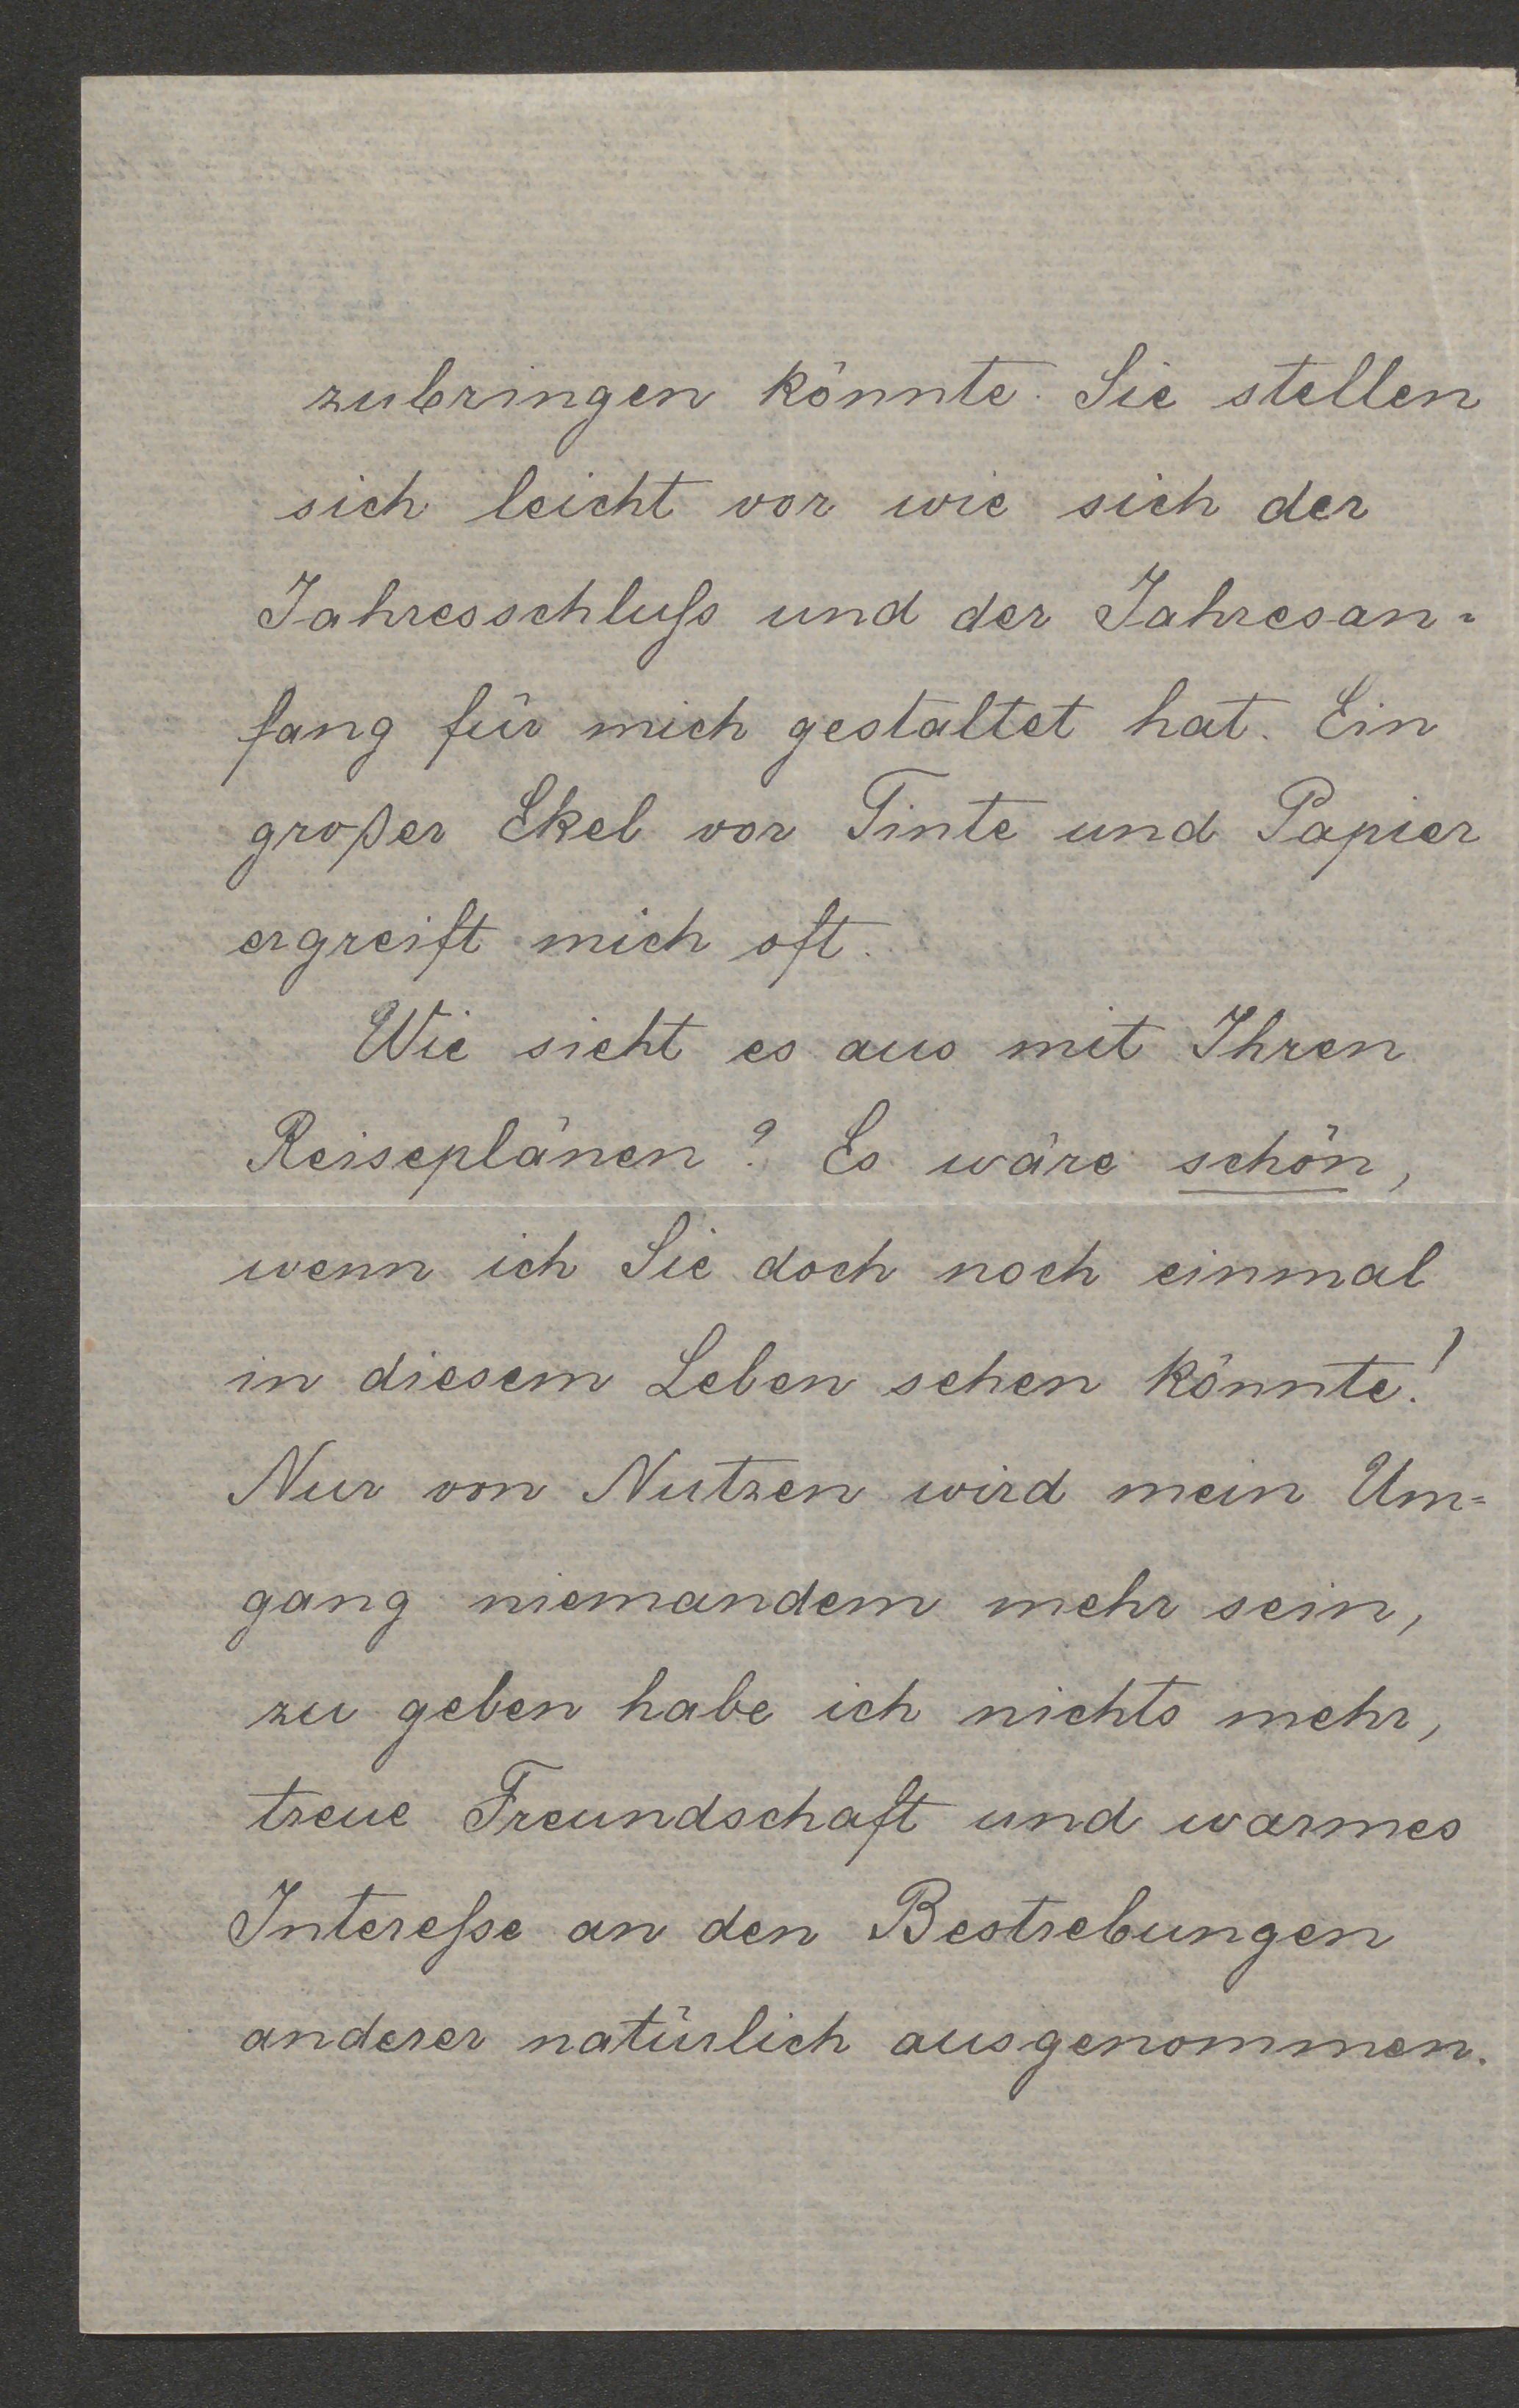 zubringen könnte. Sie stellen
sich leicht vor wie sich der
Jahresschluſs und der Jahresan-
fang für mich gestaltet hat. Ein
großer Ekel vor Tinte und Papier
ergreift mich oft.
Wie sieht es aus mit Ihren
Reiseplänen? Es wäre schön,
wenn ich Sie doch noch einmal
in diesem Leben sehen könnte!
Nur von Nutzen wird mein Um=
gang niemandem mehr sein,
zu geben habe ich nichts mehr,
treue Freundschaft und warmes
Intereſse an den Bestrebungen
anderer natürlich ausgenommen.